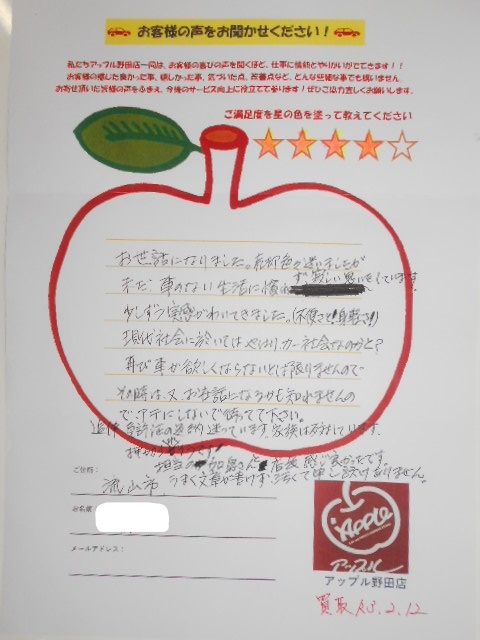 お客様の声をお聞かせください！
私たちアップル野田店一同は、お客様の喜びの声を聞くほど、仕事に情熱とやりがいがでてきます！！
お客様の感じた良かった事、嬉しかった事、気づいた点、改善点など、どんな些細な事でも構いません。
お寄せ頂いた皆様の声をふまえ、今後のサービス向上に役立てて参ります！ぜひご協力宜しくお願いします。
ご満足度を星の色を塗って教えてください
お世話になりました。
色々迷いましたが
まだ車のない生活に慣れ
ず寂しい思いをしています
少しずつ実感がわいてきました。(不便さと身軽さ)
現代社会に於いてはやはりカー社会なのかと？
再び車が欲しくならないとは限りませんので
の時は、又、お世話になるかも知れませんの
で、
にしないで待ってて下さい。
追伸 免許証の返納迷っています。家族は
担当の
さん
店後感じ良かったです。
うまく文章が書けず
くて申し訳ありません。
ご住所：
流山市
お名前
メールアドレス：
Apple
アップル
アップル野田店
買取 R3.2.12